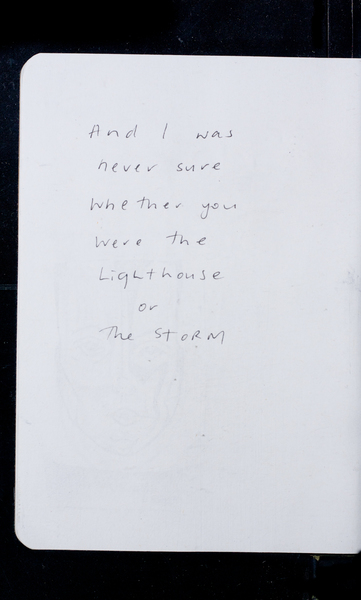 And I was
never sure
whether you
were the
Lighthouse
or
The StORM